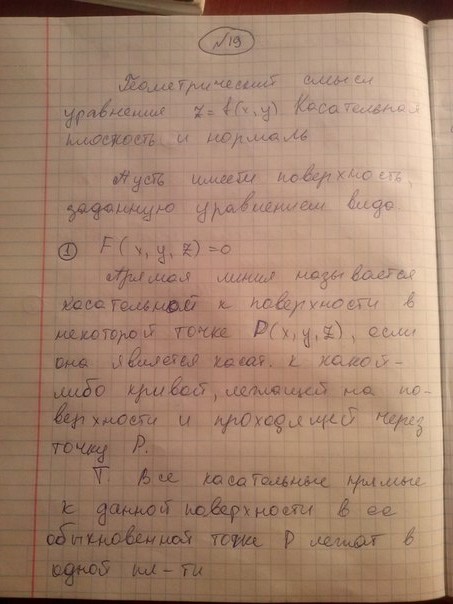 №19
Геометрический смысл
уравнения z = f(x, y) Касательная
плоскость и нормаль
Пусть имеем поверхность,
заданную уравнением вида
① F(x, y, z) = 0
Прямая линия называется
касательной к поверхности в
некоторой точке P(x, y, z), если
она является касат. к какой-
либо кривой, лежащей на по-
верхности и проходящей через
точку P.
Т. Все касательные прямые
к данной поверхности в ее
обыкновенной точке P лежат в
одной пл-ти